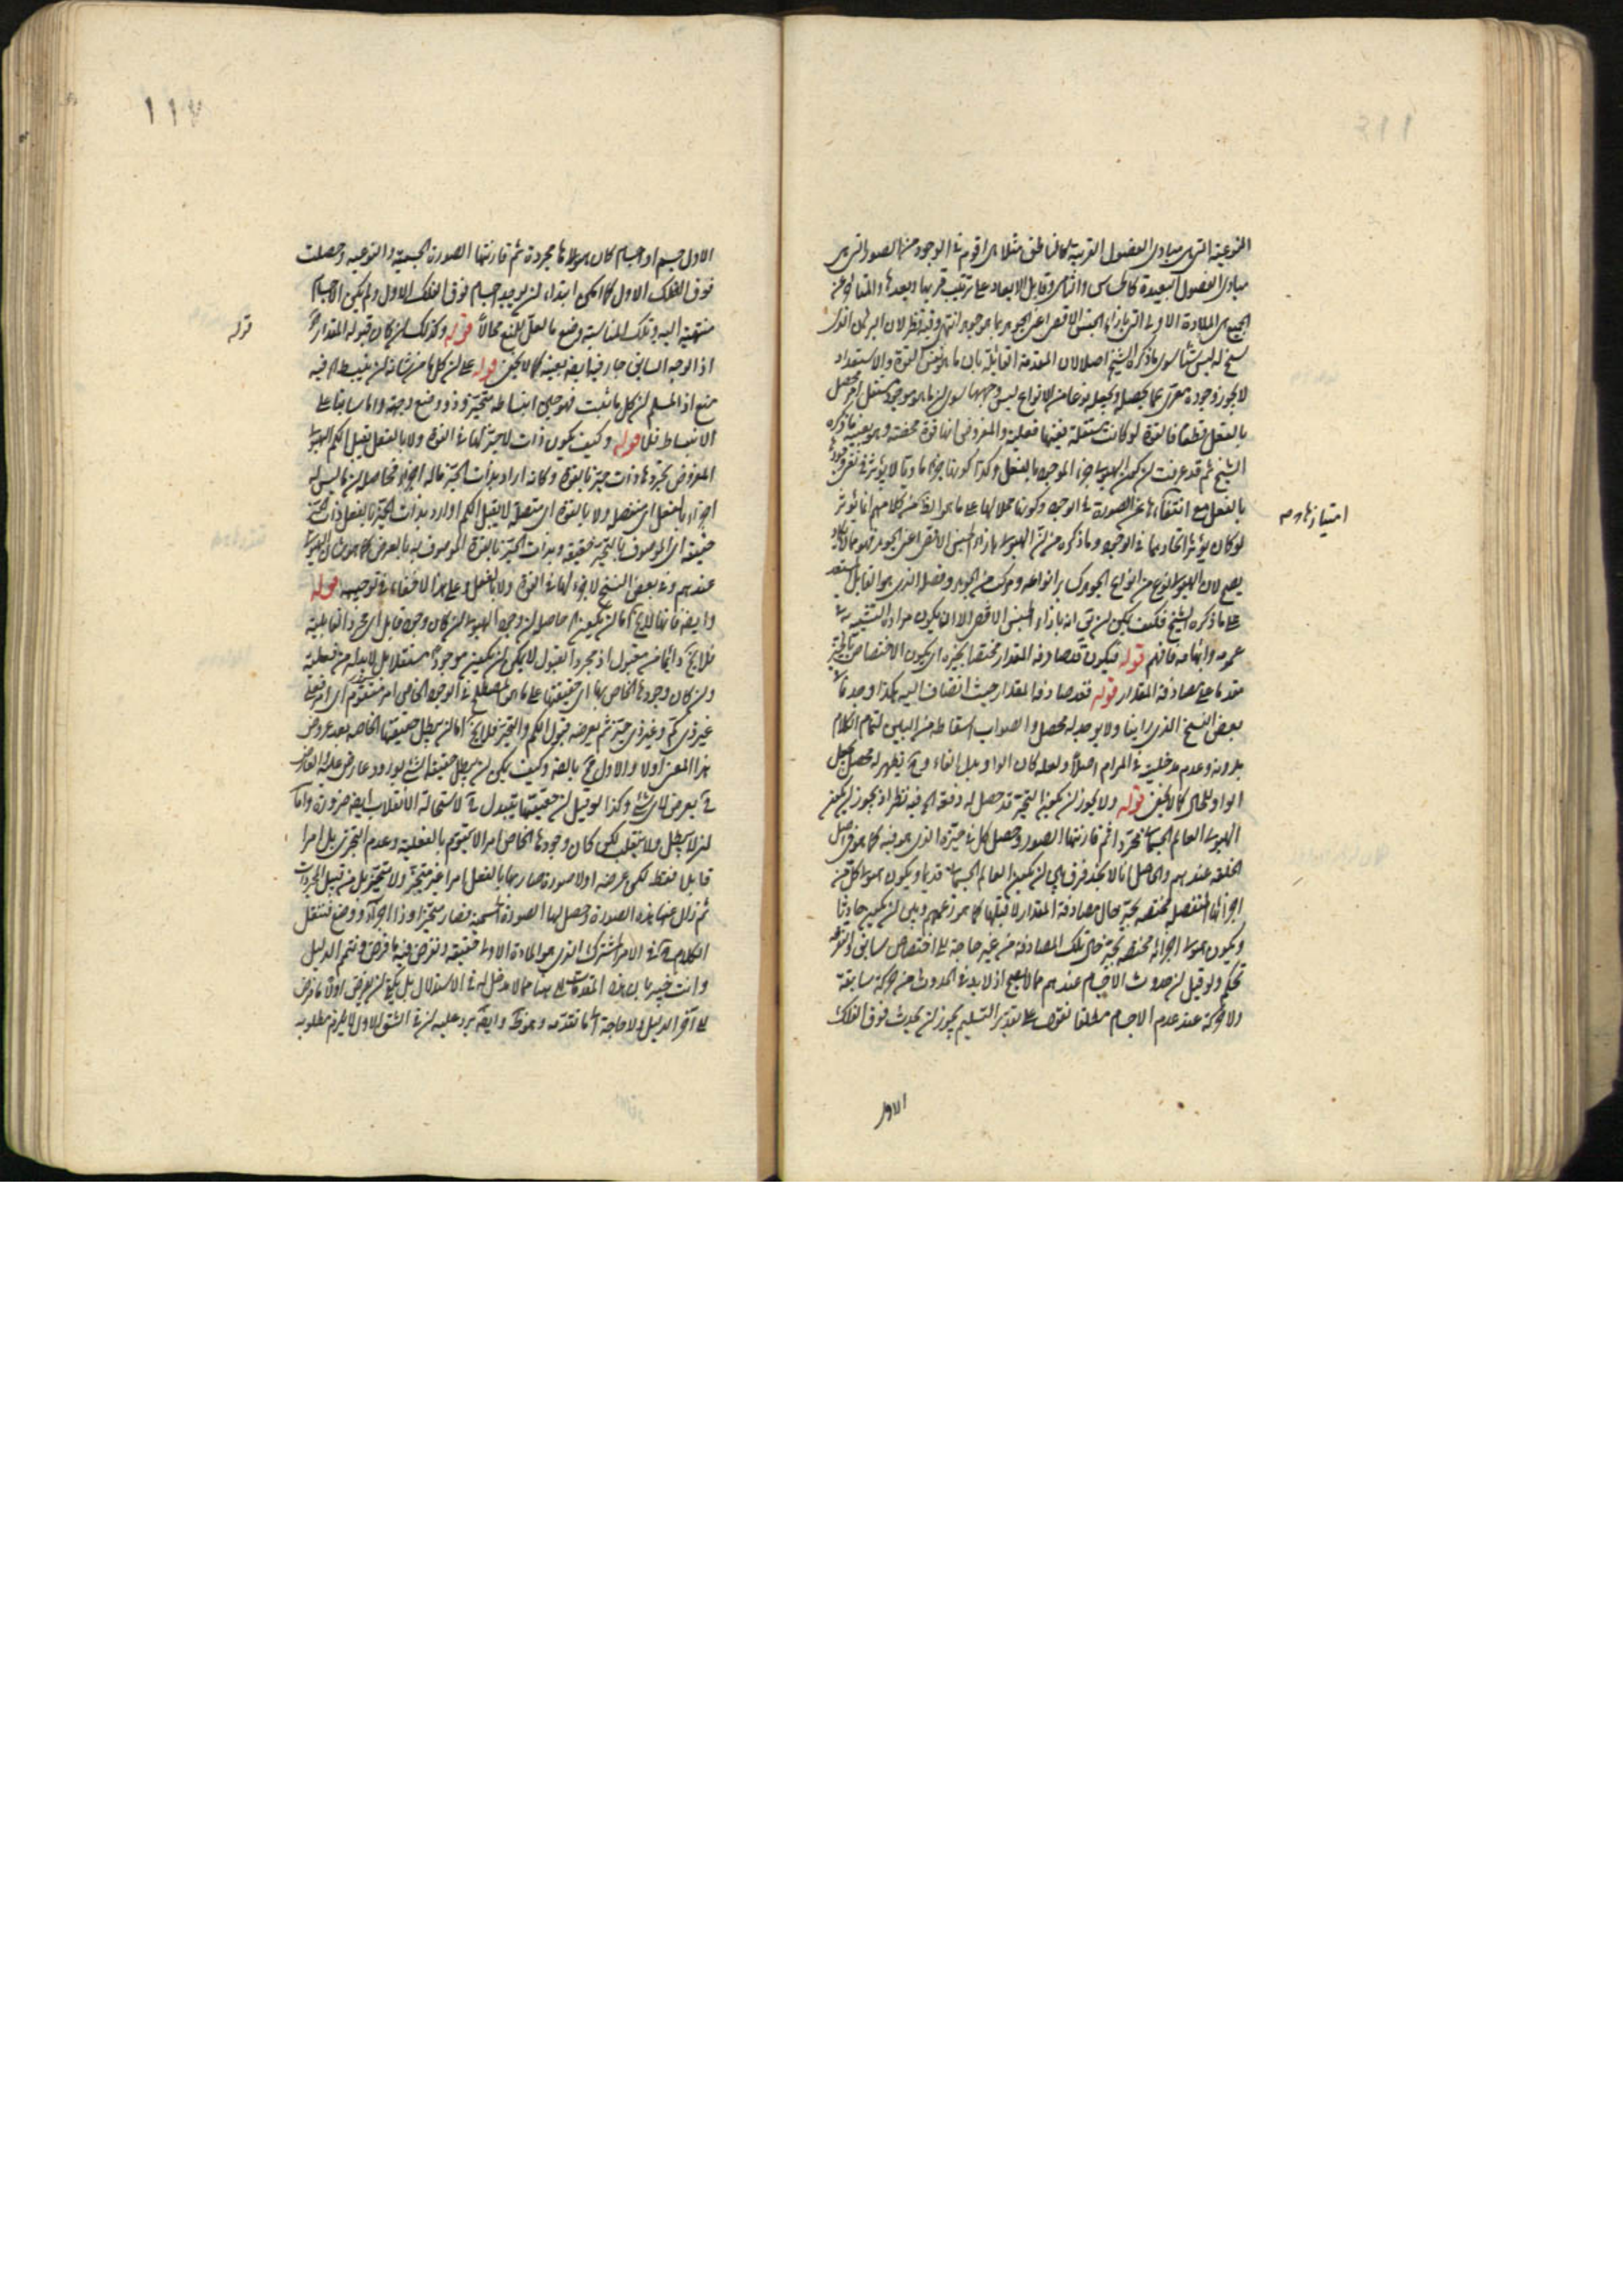 النوعية التي هي مبادى الفصول القريبة كالناطق مثلا هي اقوم في الوجود من الصور التي هي
مبادى الفصول البعيدة كالحساس والنامى وقابل الابعاد على ترتيب قربها وبعدها والمتأخر عن
الجميع هي المادة الاولى التي بازاء الجنس الاقصى اعنى الجوهر بما هو جوهر انتهى وفيه نظر لان البرهان الذى
سنح له ليس شيئا سوى ما ذكره الشيخ اصلا لان المقدمة القائلة بان ما هو نفس القوة والاستعداد
لا يجوز وجوده معرى عما يحصله ويجعله نوعا من الانواع ليس وجهها سوى ان ما هو موجود مستقل امر محصل
بالفعل قطعا فالقوة لو كانت مستقلة بنفسها فعلية والمفروض انها قوة محضة وهو بعينه ما ذكره
الشيخ ثم قد عرفت ان كون الهيولى جزء الموجود بالفعل وكذا كونها جزءا ماديا لا يؤثر في تعرى وجودها
بالفعل مع انتفاء عن الصورة في الوجود وكونها محلا لها على ما هو الظ من كلامهم انما يؤثر
امتيازها وصم
لو كان يؤثر اتحادهما في الوجود وما ذكره من ان الهيولى بازاء الجنس الاقصى اعنى الجوهر فهو مما لا يكاد
يصح لان الهيولى نوع من انواع الجوهر كسائر انواعه ومركب من الجوهر وفصل الذى هو القابل المستعد
على ما ذكره الشيخ فكيف يمكن ان يق انه بازاء الجنس الاقصى الا ان يكون مراده التشبيه في
عمومه وابهامه فافهم قوله فيكون قد صادفه المقدار مختصا بحيزه اى يكون الاختصاص بالحيز
مقدما على مصادفة المقدار قوله فقد صادفه المقدار حيث انضاف اليه هكذا وجد في
بعض النسخ الذى راينا ولا يوجد له محصل والصواب اسقاطه من البين لتمام الكلام
بدونه وعدم مدخليته في المرام اصلا ولعله كان الواو بدل الفاء وح يظهر له محصل بجعل
الواو للحال كما لا يخفى قوله ولا يجوز ان يكون التحيز قد حصل له دفعة الخ فيه نظر اذ يجوز ان يكون
الهيولى العالم الجسمانى مجردا ثم قارنتها الصور وحصل كل في حيزه الذى هو فيه كما هو في اصل
الخلقة عندهم والحاصل انا لا نجد فرقا بين ان يكون العالم الجسمانى قديما ويكون هيولى كل من
اجزائها المنفصل مختصه بحيز حال مصادفة المقدار لا قبلها كما هو زعمهم وبين ان يكون حادثا
ويكون هيولى اجزائه مختصه بحيز حال تلك المصادفة من غير حاجة الى اختصاص سابق والتفرقة
تحكم ولو قيل ان حدوث الاجسام عندهم مما لا يصح اذ لا بد في الحدوث من حركة سابقة
ولا حركة عند عدم الاجسام مطلقا نقول على تقدير التسليم يجوز ان يحدث فوق الفلك
الاول
١١٧
الاول جسم او اجسام كان هيولاها مجردة ثم قارنتها الصورة الجسمية والنوعيه وحصلت
فوق الفلك الاول كما امكن ابتداء ان يوجد اجسام فوق الفلك الاول ولم يكن الاجسام
منتهية اليه وتلك المناسبة وضع ما لعل للمنع مجالا قوله وكذلك ان كان قبوله المقدار الخ
قوله
اذ الوجه السابق جار فيه ايضا بعينه كما لا يخفى قوله على ان كل ما من شانه ان ينبسط الخ فيه
منع اذ المسلم ان كل ما ثبت فهو حين انبساطه متحيز وذو وضع وجهة واما سابقا على
الانبساط فلا قوله وكيف يكون ذات لا حيز لها في القوة ولا بالفعل يقبل الكم الهيولى
المفروض تجردها ذات حيز بالقوة وكانه اراد بذات الحيز ماله اجزاء فحاصله ان ما ليس له
اجزاء بالفعل اى منفصل ولا بالقوة اى متصلة لا يقبل الكم او اراد بذات الحيز بالفعل ذات الحيز
حقيقة اى الموصوف بالتحيز حقيقة وبذات الحيز بالقوة الموصوف به بالعرض كما هو شان الهيولى
عندهم وفي بعض النسخ لا جزء لها في القوة ولا بالفعل وعلى هذا لا خفاء في توجيهه قوله
وايضا فانها لا يخ اما ان يكون الخ حاصله ان وجود الهيولى ان كان وجود قابل اى مجرد القابلية
فلا يخ دائما من مقبول اذ مجرد القبول لا يمكن ان يكون موجودا مستقلا بل لا بد له من فعلية
وان كان وجودها الخاص بها اى حقيقتها على ما هو المصطلح في الوجود الخاص امر متقوم اى امر فعلى
غير ذى كم وغير ذى حيز ثم يعرضه قبول الكم والتحيز فلا يخ اما ان يبطل حقيقتها الخاصه بعد عروض
هذا المعنى اولا والاول مح بالضرورة وكيف يمكن ان يبطل حقيقة الشئ بورود عارض عليه العارض
ح يعرض لاى شئ وكذا لو قيل ان حقيقتها يتبدل ح لاستحالة الانقلاب ايضا ضرورة واما
ان لا يبطل ولا ينقلب لكن كان وجودها الخاص امرا لا يتقوم بالفعلية وعدم التجزى بل امرا
قابلا فقط لكن عرضه اولا صورة صار بها بالفعل امرا غير متجز ولا متحيز بل من قبيل المجردات
ثم زال عنها هذه الصورة وحصل لها الصورة الجسمية فصار متحيزا وذا اجزاء ووضع فننقل
الكلام ح في الامر المشترك الذى هو المادة الاولى حقيقة ونفرض فيه ما فرض ونتمم الدليل
وانت خبير بان هذه المقدمات التى ههنا مما لا مدخل له في الاستدلال بل يكفى ان يفرض اولا ما فرض
الى آخر الدليل ولا حاجة الى ما تقدمه وهو ظ وايضا يرد عليه ان في الشق الاول لا يلزم مطلوبه